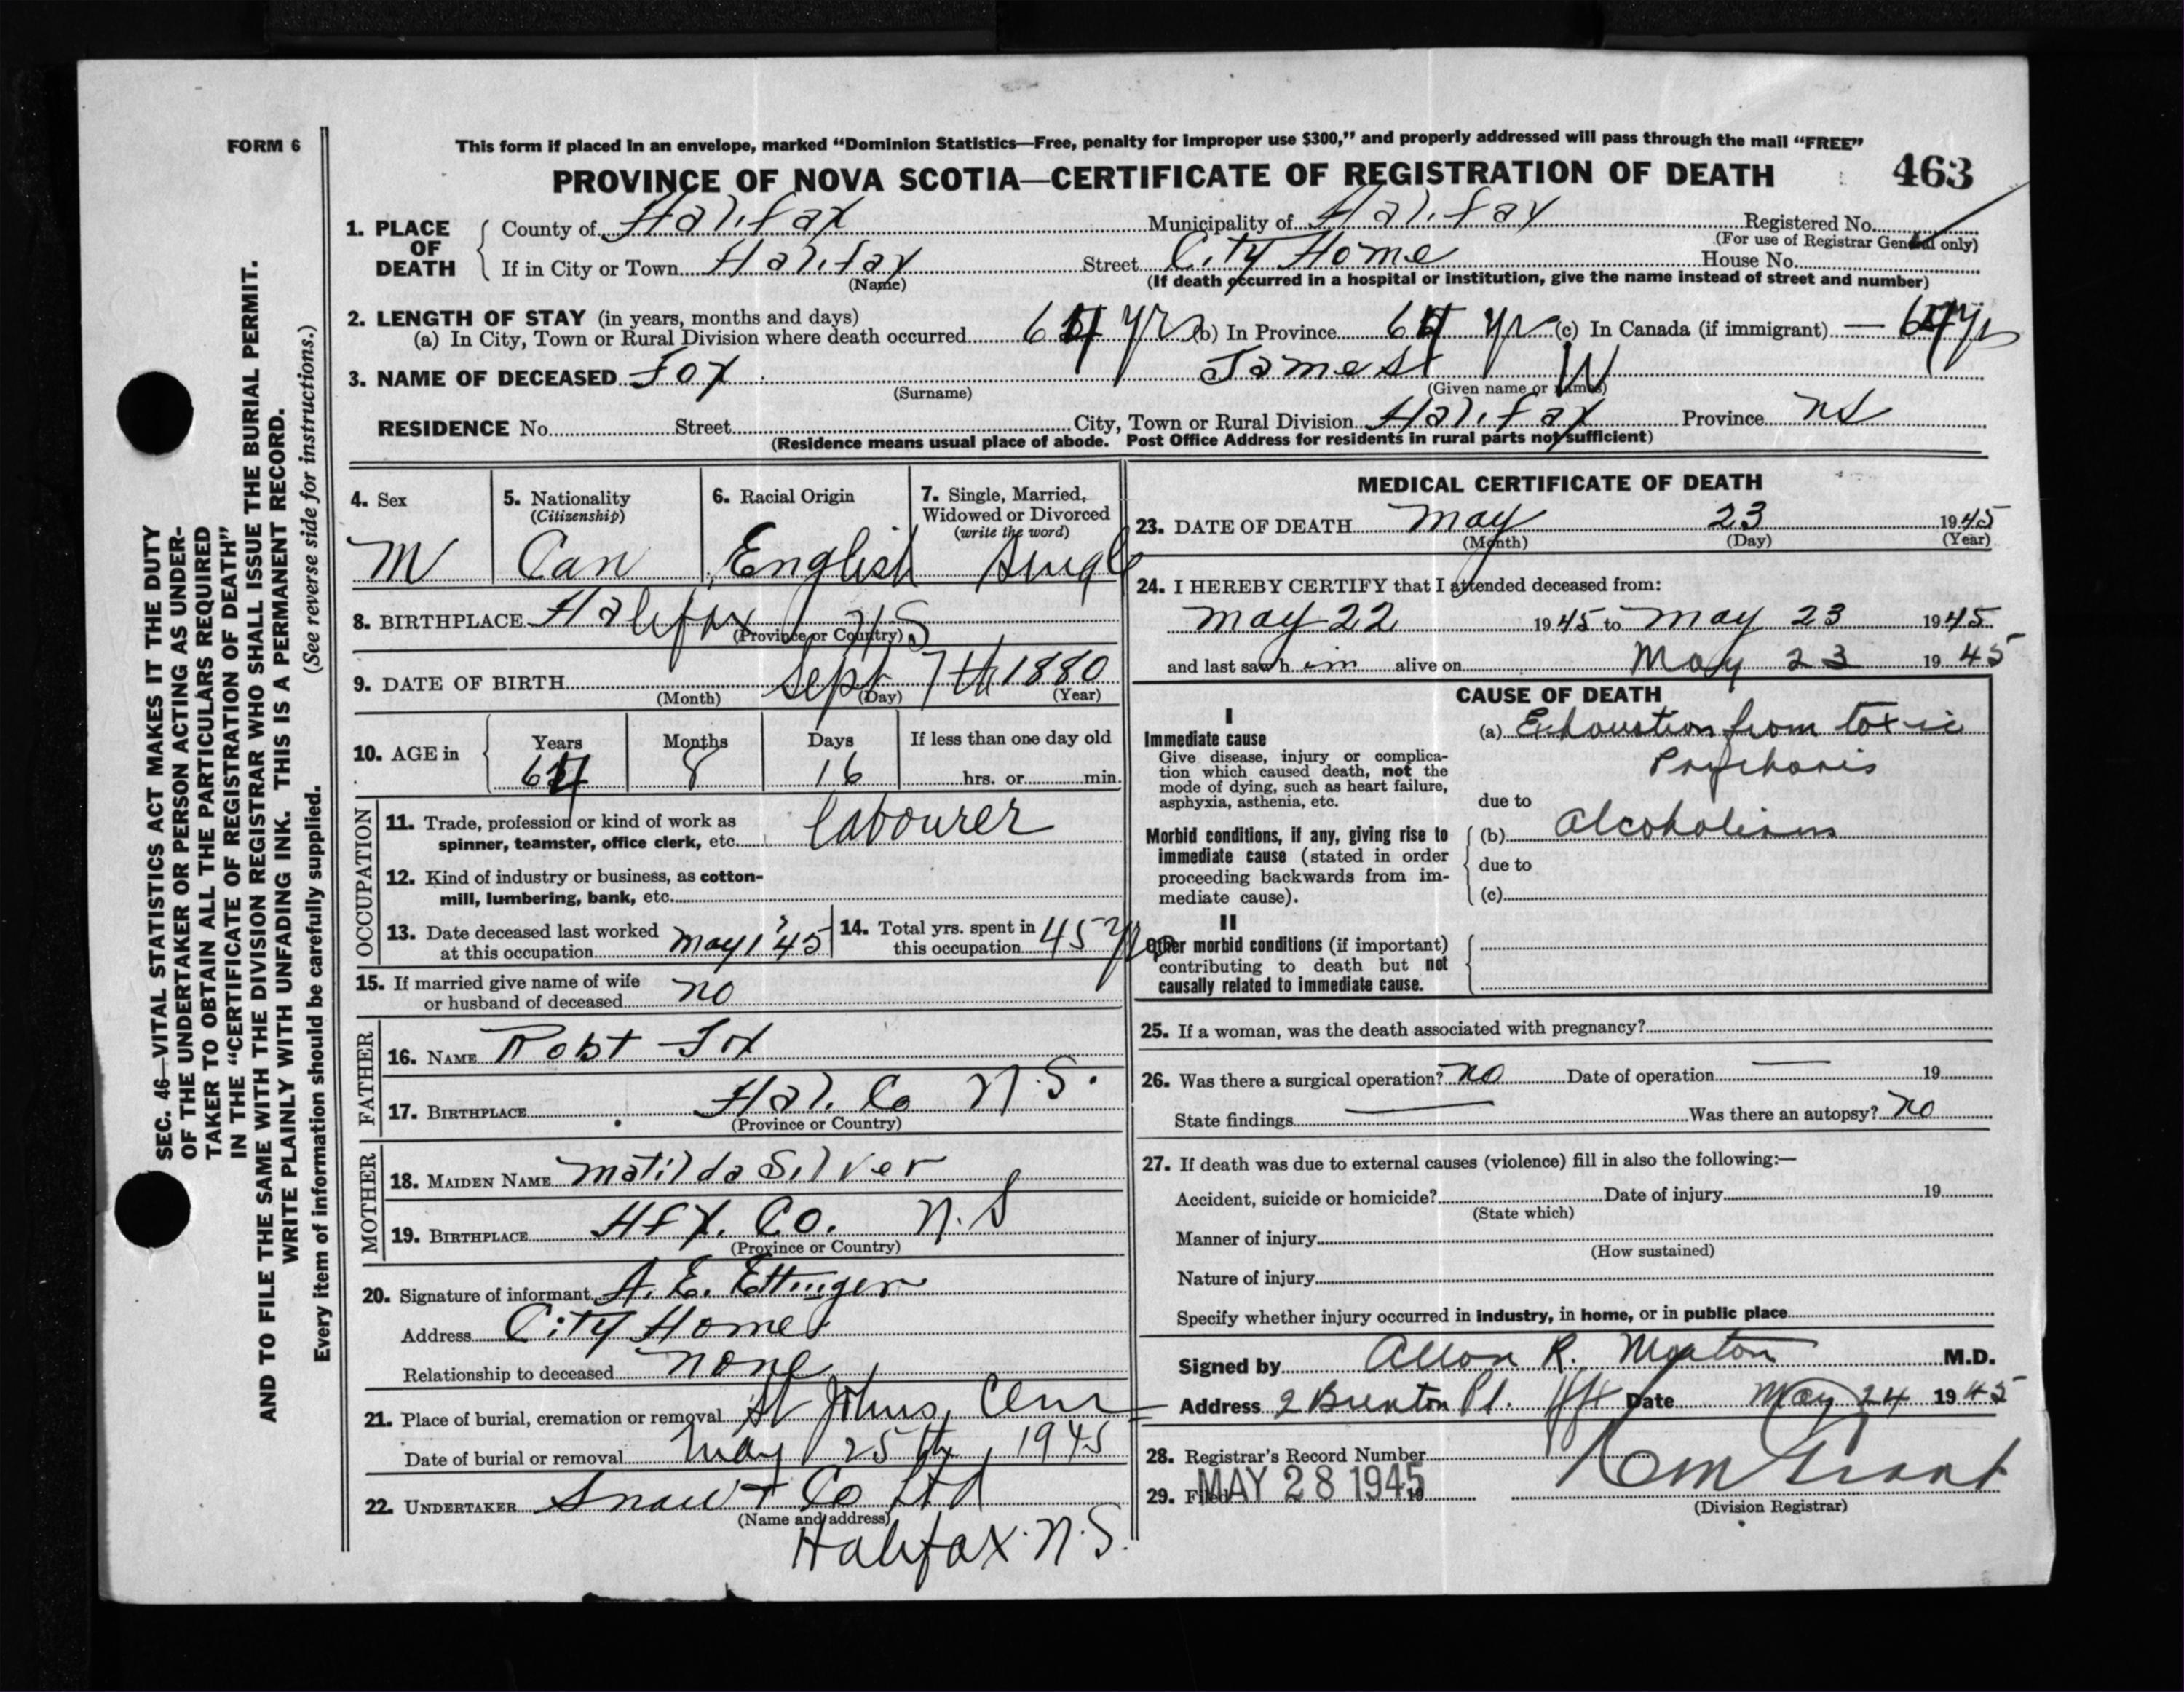 FORM 6
This form if placed in an envelope, marked “Dominion Statistics—Free, penalty for improper use $300,” and properly addressed will pass through the mail “FREE”
PROVINCE OF NOVA SCOTIA—CERTIFICATE OF REGISTRATION OF DEATH 463
1. PLACE OF DEATH
County of Halifax Municipality of Halifax Registered No.
(For use of Registrar General only)
If in City or Town Halifax Street City Home House No.
(Name) (If death occurred in a hospital or institution, give the name instead of street and number)
2. LENGTH OF STAY (in years, months and days)
(a) In City, Town or Rural Division where death occurred 64 yrs (b) In Province 64 yrs (c) In Canada (if immigrant) — 64 yrs
3. NAME OF DECEASED Fox James W
(Surname) (Given name or names)
RESIDENCE No. Street City, Town or Rural Division Halifax Province NS
(Residence means usual place of abode. Post Office Address for residents in rural parts not sufficient)
4. Sex M
5. Nationality (Citizenship) Can
6. Racial Origin English
7. Single, Married, Widowed or Divorced (write the word) Single
8. BIRTHPLACE Halifax N.S
(Province or Country)
9. DATE OF BIRTH Sept 7th 1880
(Month) (Day) (Year)
10. AGE in Years Months Days If less than one day old
64 8 16 hrs. or min.
OCCUPATION
11. Trade, profession or kind of work as spinner, teamster, office clerk, etc. labourer
12. Kind of industry or business, as cotton-mill, lumbering, bank, etc.
13. Date deceased last worked at this occupation May 1 '45
14. Total yrs. spent in this occupation 45 yrs
15. If married give name of wife or husband of deceased no
FATHER
16. NAME Robt Fox
17. BIRTHPLACE Hal. Co N.S.
(Province or Country)
MOTHER
18. MAIDEN NAME Matilda Silver
19. BIRTHPLACE Hfx. Co. N.S
(Province or Country)
20. Signature of informant A. E. Ettinger
Address City Home
Relationship to deceased none
21. Place of burial, cremation or removal St Johns Cem
Date of burial or removal May 25th, 1945
22. UNDERTAKER Snow + Co Ltd
(Name and address)
Halifax. N.S.
MEDICAL CERTIFICATE OF DEATH
23. DATE OF DEATH May 23 1945
(Month) (Day) (Year)
24. I HEREBY CERTIFY that I attended deceased from:
May 22 1945 to May 23 1945
and last saw him alive on May 23 1945
CAUSE OF DEATH
I
Immediate cause
Give disease, injury or complication which caused death, not the mode of dying, such as heart failure, asphyxia, asthenia, etc.
(a) Exhaustion from toxic
Psychosis
due to
Morbid conditions, if any, giving rise to immediate cause (stated in order proceeding backwards from immediate cause).
(b) Alcoholism
due to
(c)
II
Other morbid conditions (if important) contributing to death but not causally related to immediate cause.
25. If a woman, was the death associated with pregnancy?
26. Was there a surgical operation? no Date of operation — 19
State findings — Was there an autopsy? no
27. If death was due to external causes (violence) fill in also the following:—
Accident, suicide or homicide? Date of injury 19
(State which)
Manner of injury
(How sustained)
Nature of injury
Specify whether injury occurred in industry, in home, or in public place
Signed by Allan R. Morton M.D.
Address 2 Brenton Pl. Hfx Date May 24 1945
28. Registrar's Record Number
29. Filed MAY 28 1945 19
(Division Registrar)
SEC. 46—VITAL STATISTICS ACT MAKES IT THE DUTY
OF THE UNDERTAKER OR PERSON ACTING AS UNDER-
TAKER TO OBTAIN ALL THE PARTICULARS REQUIRED
IN THE “CERTIFICATE OF REGISTRATION OF DEATH”
AND TO FILE THE SAME WITH THE DIVISION REGISTRAR WHO SHALL ISSUE THE BURIAL PERMIT.
WRITE PLAINLY WITH UNFADING INK. THIS IS A PERMANENT RECORD.
Every item of information should be carefully supplied. (See reverse side for instructions.)